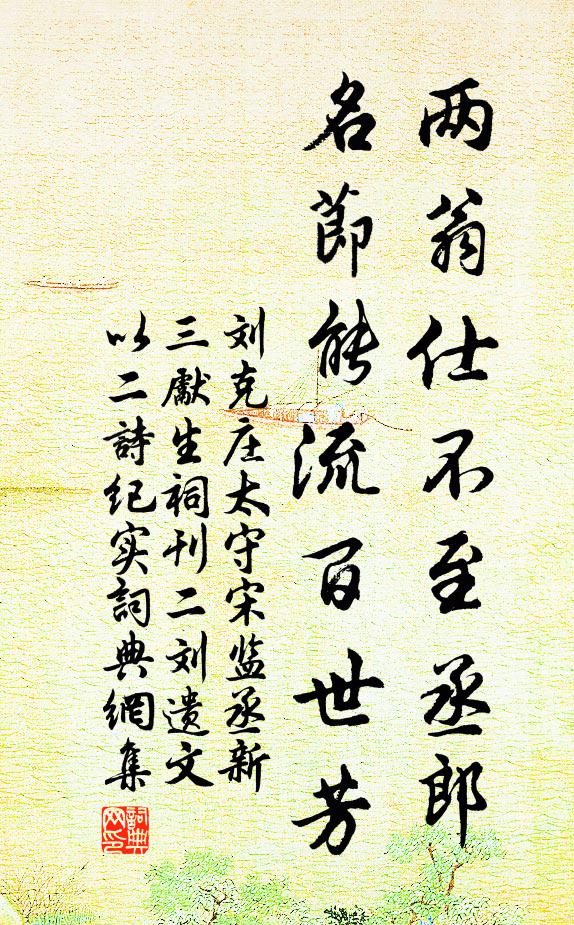 两翁仕不至丞郎
名莭能流百世芳
刘克庄太守宋监丞新
三献生祠刊二刘遗文
以二詩纪实詞典網集
詞典网印